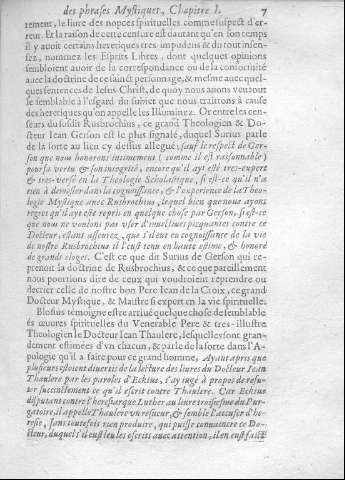 des phrases Mystiques, Chapitre I. 7
rement, le liure des nopces spirituelles comme suspect d'er-
reur. Et la raison de cette censure est dautant qu'en son temps
il y auoit certains heretiques tres impudens & du tout insen-
sez, nommez les Esprits Libres, dont quelques opinions
sembloient auoir de la correspondance ou de la conformité
auec la doctrine de ce sainct personnage, & mesme auec quel-
ques sentences de Iesus-Christ, de quoy nous auons veu tout
se semblable à l'esgard du subiet que nous traittons à cause
des heretiques qu'on appelle les Illuminez. Or entre les cen-
seurs du susdit Rusbrochius, ce grand Theologien & Do-
cteur Iean Gerson est le plus signalé, duquel Surius parle
de la sorte au lieu cy dessus allegué; sauf le respect de Ger-
son que nous honorons intimement ( comme il est raisonnable )
pour sa vertu & son integrité, encore qu'il ayt esté tres-expert
& tres-versé en la Theologie Scholastique, si est-ce qu'il n'a
rien à demesler dans la cognoissance, & l'experience de la Theo-
logie Mystique auec Rusbrochius, lequel bien que nous ayons
regret qu'il ayt esté repris en quelque chose par Gerson, si est-ce
que nous ne voulons pas vser d'inuectiues picquantes contre ce
Docteur, estant asseurez, que s'il eut eu cognoissance de la vie
de nostre Rusbrochius il l'eust tenu en haute estime, & honoré
de grands eloges. C'est ce que dit Surius de Gerson qui re-
prenoit la doctrine de Rusbrochius, & ce que pareillement
nous pourrions dire de ceux qui voudroient reprendre ou
decrier celle de nostre bon Pere Iean de la Croix, ce grand
Docteur Mystique, & Maistre si expert en la vie spirituelle.
Blosius témoigne estre arriué quelque chose de semblable
és œuures spirituelles du Venerable Pere & tres-illustre
Theologien le Docteur Iean Thaulere, lesquelles sont gran-
dement estimées d'vn chacun, & parle de la sorte dans l'A-
pologie qu'il a faite pour ce grand homme, Ayant apris que
plusieurs estoient diuertis de la lecture des liures du Docteur Iean
Thaulere par les paroles d'Echius, i'ay iugé à propos de refu-
ter succinctement ce qu'il escrit contre Thaulere. Car Echius
disputant contre l'heresiarque Luther au liure troisiesme du Pur-
gatoire, il appelle Thaulere vn resueur, & semble l'accuser d'he-
resie, sans toutefois rien produire, qui puisse conuaincre ce Do-
cteur, duquel s'il eust leu les escrits auec attention, il en eust fait